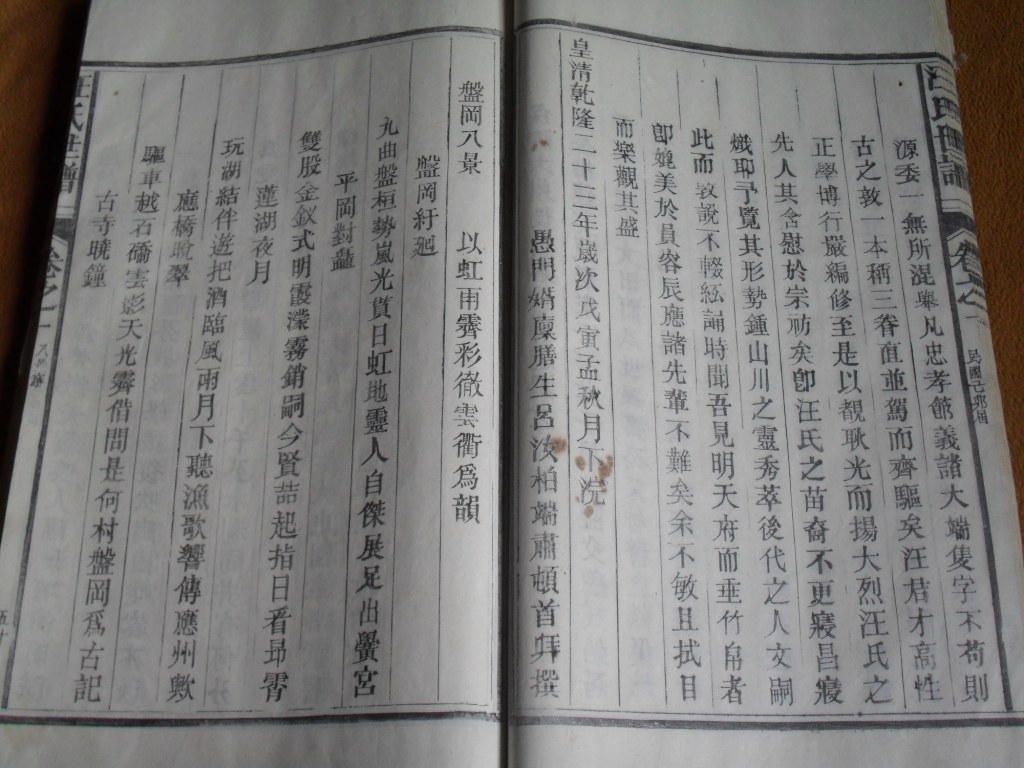 汪氏世譜
卷之一
源委一無所混舉凡忠孝節義諸大端隻字不苟則
古之敦一本稱三眷直並駕而齊驅矣汪君才高性
正學博行嚴編修至是以覩耿光而揚大烈汪氏之
先人其含慰於宗祊矣卽汪氏之苗裔不更寢昌寢
熾耶予覽其形勢鍾山川之靈秀萃後代之人文嗣
此而敦說不輟絃誦時聞吾見明天府而垂竹帛者
卽媲美於員容辰應諸先輩不難矣余不敏且拭目
而樂觀其盛
皇清乾隆二十三年歲次戊寅孟秋月下浣
愚門婿廩膳生呂汝柏端肅頓首拜撰
盤岡八景　以虹雨霽彩徹雲衢爲韻
盤岡紆廻
九曲盤桓勢嵐光貫日虹地靈人自傑展足出黌宮
平岡對矗
雙股金釵式明霞濛霧銷嗣今賢喆起指日看昻霄
蓮湖夜月
玩湖結伴遊把酒臨風雨月下聽漁歌響傳應州數
應橋晚翠
驅車越石磡雲影天光霽借問是何村盤岡爲古記
古寺曉鐘
汪氏世譜
卷之一